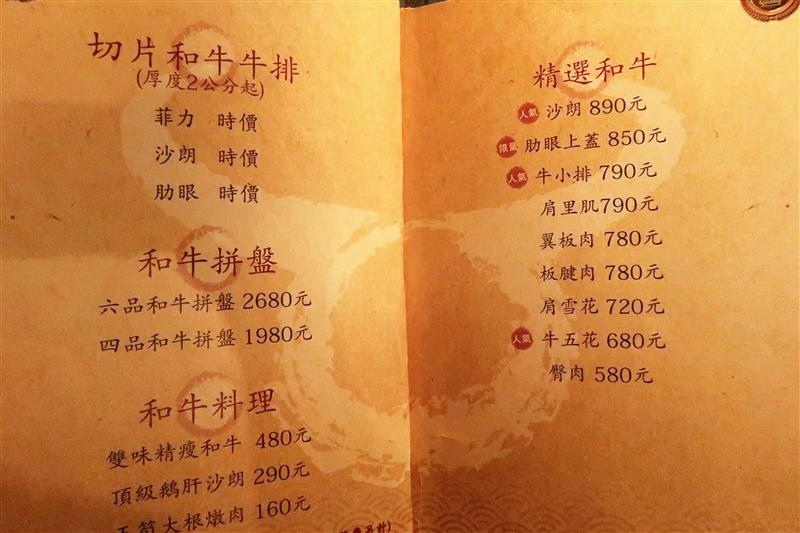 切片和牛牛排
(厚度2公分起)
菲力 時價
沙朗 時價
肋眼 時價
和牛拼盤
六品和牛拼盤 2680元
四品和牛拼盤 1980元
和牛料理
雙味精瘦和牛 480元
頂級鵝肝沙朗 290元
大根燉肉 160元
精選和牛
人氣 沙朗 890元
限量 肋眼上蓋 850元
人氣 牛小排 790元
肩里肌790元
翼板肉 780元
板腱肉 780元
肩雪花 720元
人氣 牛五花 680元
臀肉 580元